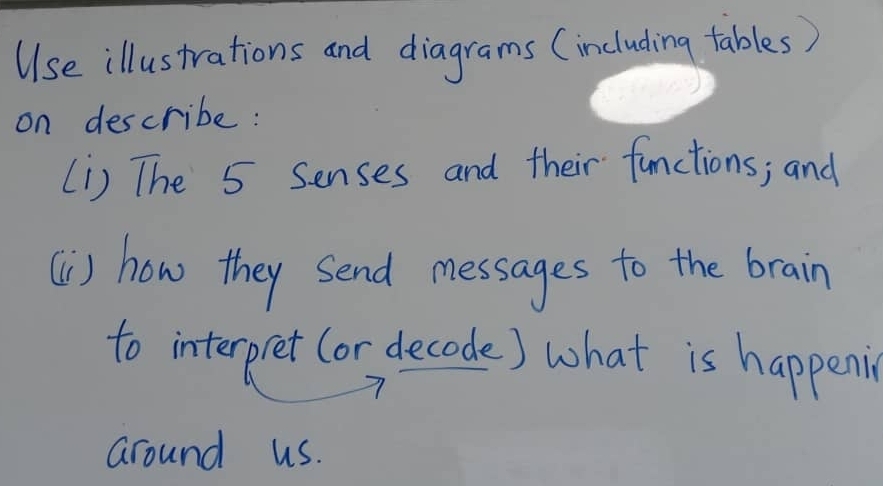 Use illustrations and diagrams (including tables)
on describe:
(i) The 5 senses and their functions; and
(ii) how they send messages to the brain
to interpret (or decode) what is happenin
around us.